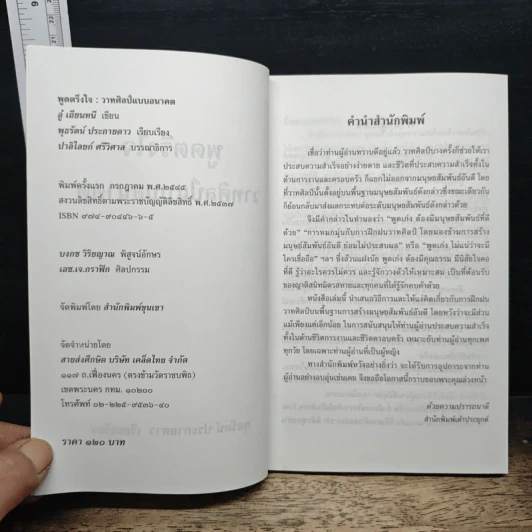 พูดตรึงใจ : วาทศิลป์แบบอนาคต
อู๋ เถียนหนี เขียน
พุธรัตน์ ประกายดาว เรียบเรียง
ปาลิไลยก์ ศรีวิศาล บรรณาธิการ
พิมพ์ครั้งแรก กรกฎาคม พ.ศ.๒๕๔๕
สงวนลิขสิทธิ์ตามพระราชบัญญัติลิขสิทธิ์ พ.ศ.๒๕๓๗
ISBN ๙๗๔-๙๐๔๔๖-๖-๕
บงกช วิริยญาณ พิสูจน์อักษร
เอซ.เจ.กราฟิก ศิลปกรรม
จัดพิมพ์โดย สำนักพิมพ์ขุนเขา
จัดจำหน่ายโดย
สายส่งศึกษิต บริษัท เคล็ดไทย จำกัด
๑๑๗ ถ.เฟื่องนคร (ตรงข้ามวัดราชบพิธ)
เขตพระนคร กทม. ๑๐๒๐๐
โทรศัพท์ ๐๒-๒๒๕-๙๕๓๖-๔๐
ราคา ๑๒๐ บาท
คำนำสำนักพิมพ์
เชื่อว่าท่านผู้อ่านทราบดีอยู่แล้ว วาทศิลป์บางครั้งก็ช่วยให้เรา
ประสบความสำเร็จอย่างง่ายดาย และชีวิตที่ประสบความสำเร็จทั้งใน
ด้านการงานและครอบครัว ก็แยกไม่ออกจากมนุษยสัมพันธ์อันดี โดย
ที่วาทศิลป์นั้นตั้งอยู่บนพื้นฐานมนุษยสัมพันธ์ดังกล่าวซึ่งขณะเดียวกัน
ก็ย้อนกลับมาส่งผลกระทบต่อระดับมนุษยสัมพันธ์ดังกล่าวด้วย
จึงมีคำกล่าวในทำนองว่า "พูดเก่ง ต้องมีมนุษยสัมพันธ์ที่ดี
ด้วย" "การหมกมุ่นกับการฝึกฝนวาทศิลป์ โดยมองข้ามการสร้าง
มนุษย์สัมพันธ์อันดี ย่อมไม่ประสบผล" หรือ "พูดเก่ง ไม่แน่ว่าจะมี
ใครเชื่อถือ" ฯลฯ ซึ่งล้วนแฝงนัย พูดเก่ง ต้องมีคุณธรรม มีนิสัยใจคอ
ที่ดี รู้ว่าอะไรควรไม่ควร และรู้จักวางตัวให้เหมาะสม เป็นที่ต้อนรับ
ของญาติสนิทมิตรสหายและทุกคนที่ได้รู้จักคบค้าด้วย
หนังสือเล่มนี้ นำเสนอวิธีการและให้แง่คิดเกี่ยวกับการฝึกฝน
วาทศิลป์บนพื้นฐานการสร้างมนุษยสัมพันธ์อันดี โดยหวังว่าจะมีส่วน
แม้เพียงแค่เล็กน้อย ในการสนับสนุนให้ท่านผู้อ่านประสบความสำเร็จ
ทั้งในด้านชีวิตการงานและชีวิตครอบครัว เหมาะกับท่านผู้อ่านทุกเพศ
ทุกวัย โดยเฉพาะท่านผู้อ่านที่เป็นผู้หญิง
ทางสำนักพิมพ์หวังอย่างยิ่งว่า จะได้รับการอุปการะจากท่าน
ผู้อ่านอย่างอบอุ่นเช่นเคย จึงขอถือโอกาสนี้กราบขอบพระคุณล่วงหน้า
ด้วยความปรารถนาดี
สำนักพิมพ์เต๋าประยุกต์